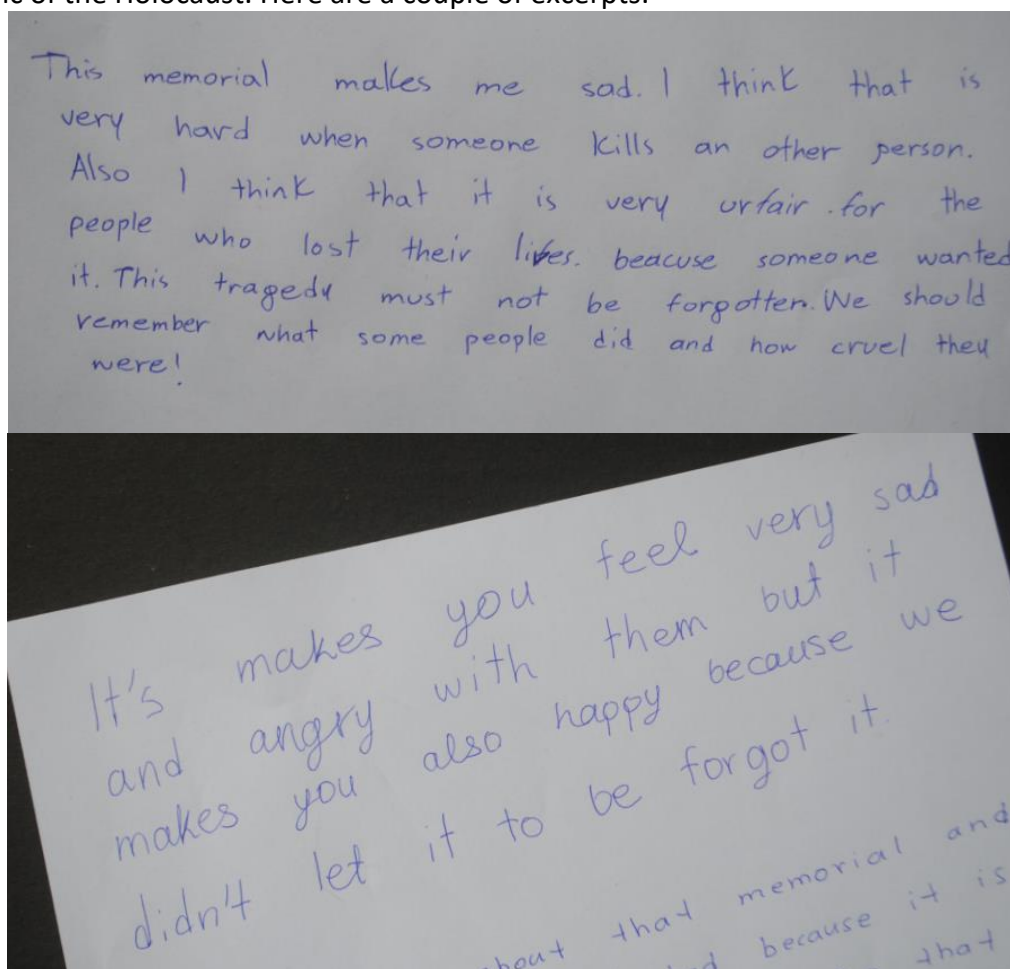 of the Holocaust. Here are a couple of excerpts:
This memorial makes me sad. I think that is
very hard when someone kills an other person.
Also I think that it is very unfair for the
people who lost their lives. beacuse someone wanted
it. This tragedy must not be forgotten. We should
remember what some people did and how cruel they
were!
It's makes you feel very sad
and angry with them but it
makes you also happy because we
didn't let it to be forgot it.
that memorial and
because it is
that